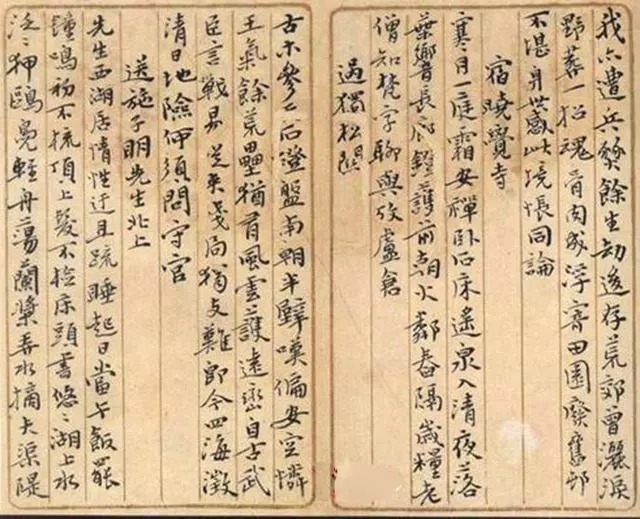 我亦遭兵燹餘生劫後存荒郊曾灑淚
野蔓一招魂骨肉成浮寄田園廢舊邨
不堪身世感此境悵同論
宿曉覺寺
寒月一庭霜安禪臥石床遙泉入清夜落
葉響長廊鐙護前朝火鄰舂隔歲糧老
僧知梵字聊與攷盧倉
過獨松關
古木參二石磴盤南朝半壁嘆偏安空憐
王氣餘荒壘猶有風雲護遠巒自古武
臣言戰易從來殘局猶支難即今四海澂
清日地險仰須問守官
送施子明先生北上
先生西湖居情性迂且疏睡起日當午飯罷
鐘鳴初不梳頂上髮不檢床頭書悠二湖上水
泛二狎鷗鳧輕舟蕩蘭槳春水摘大渠隄